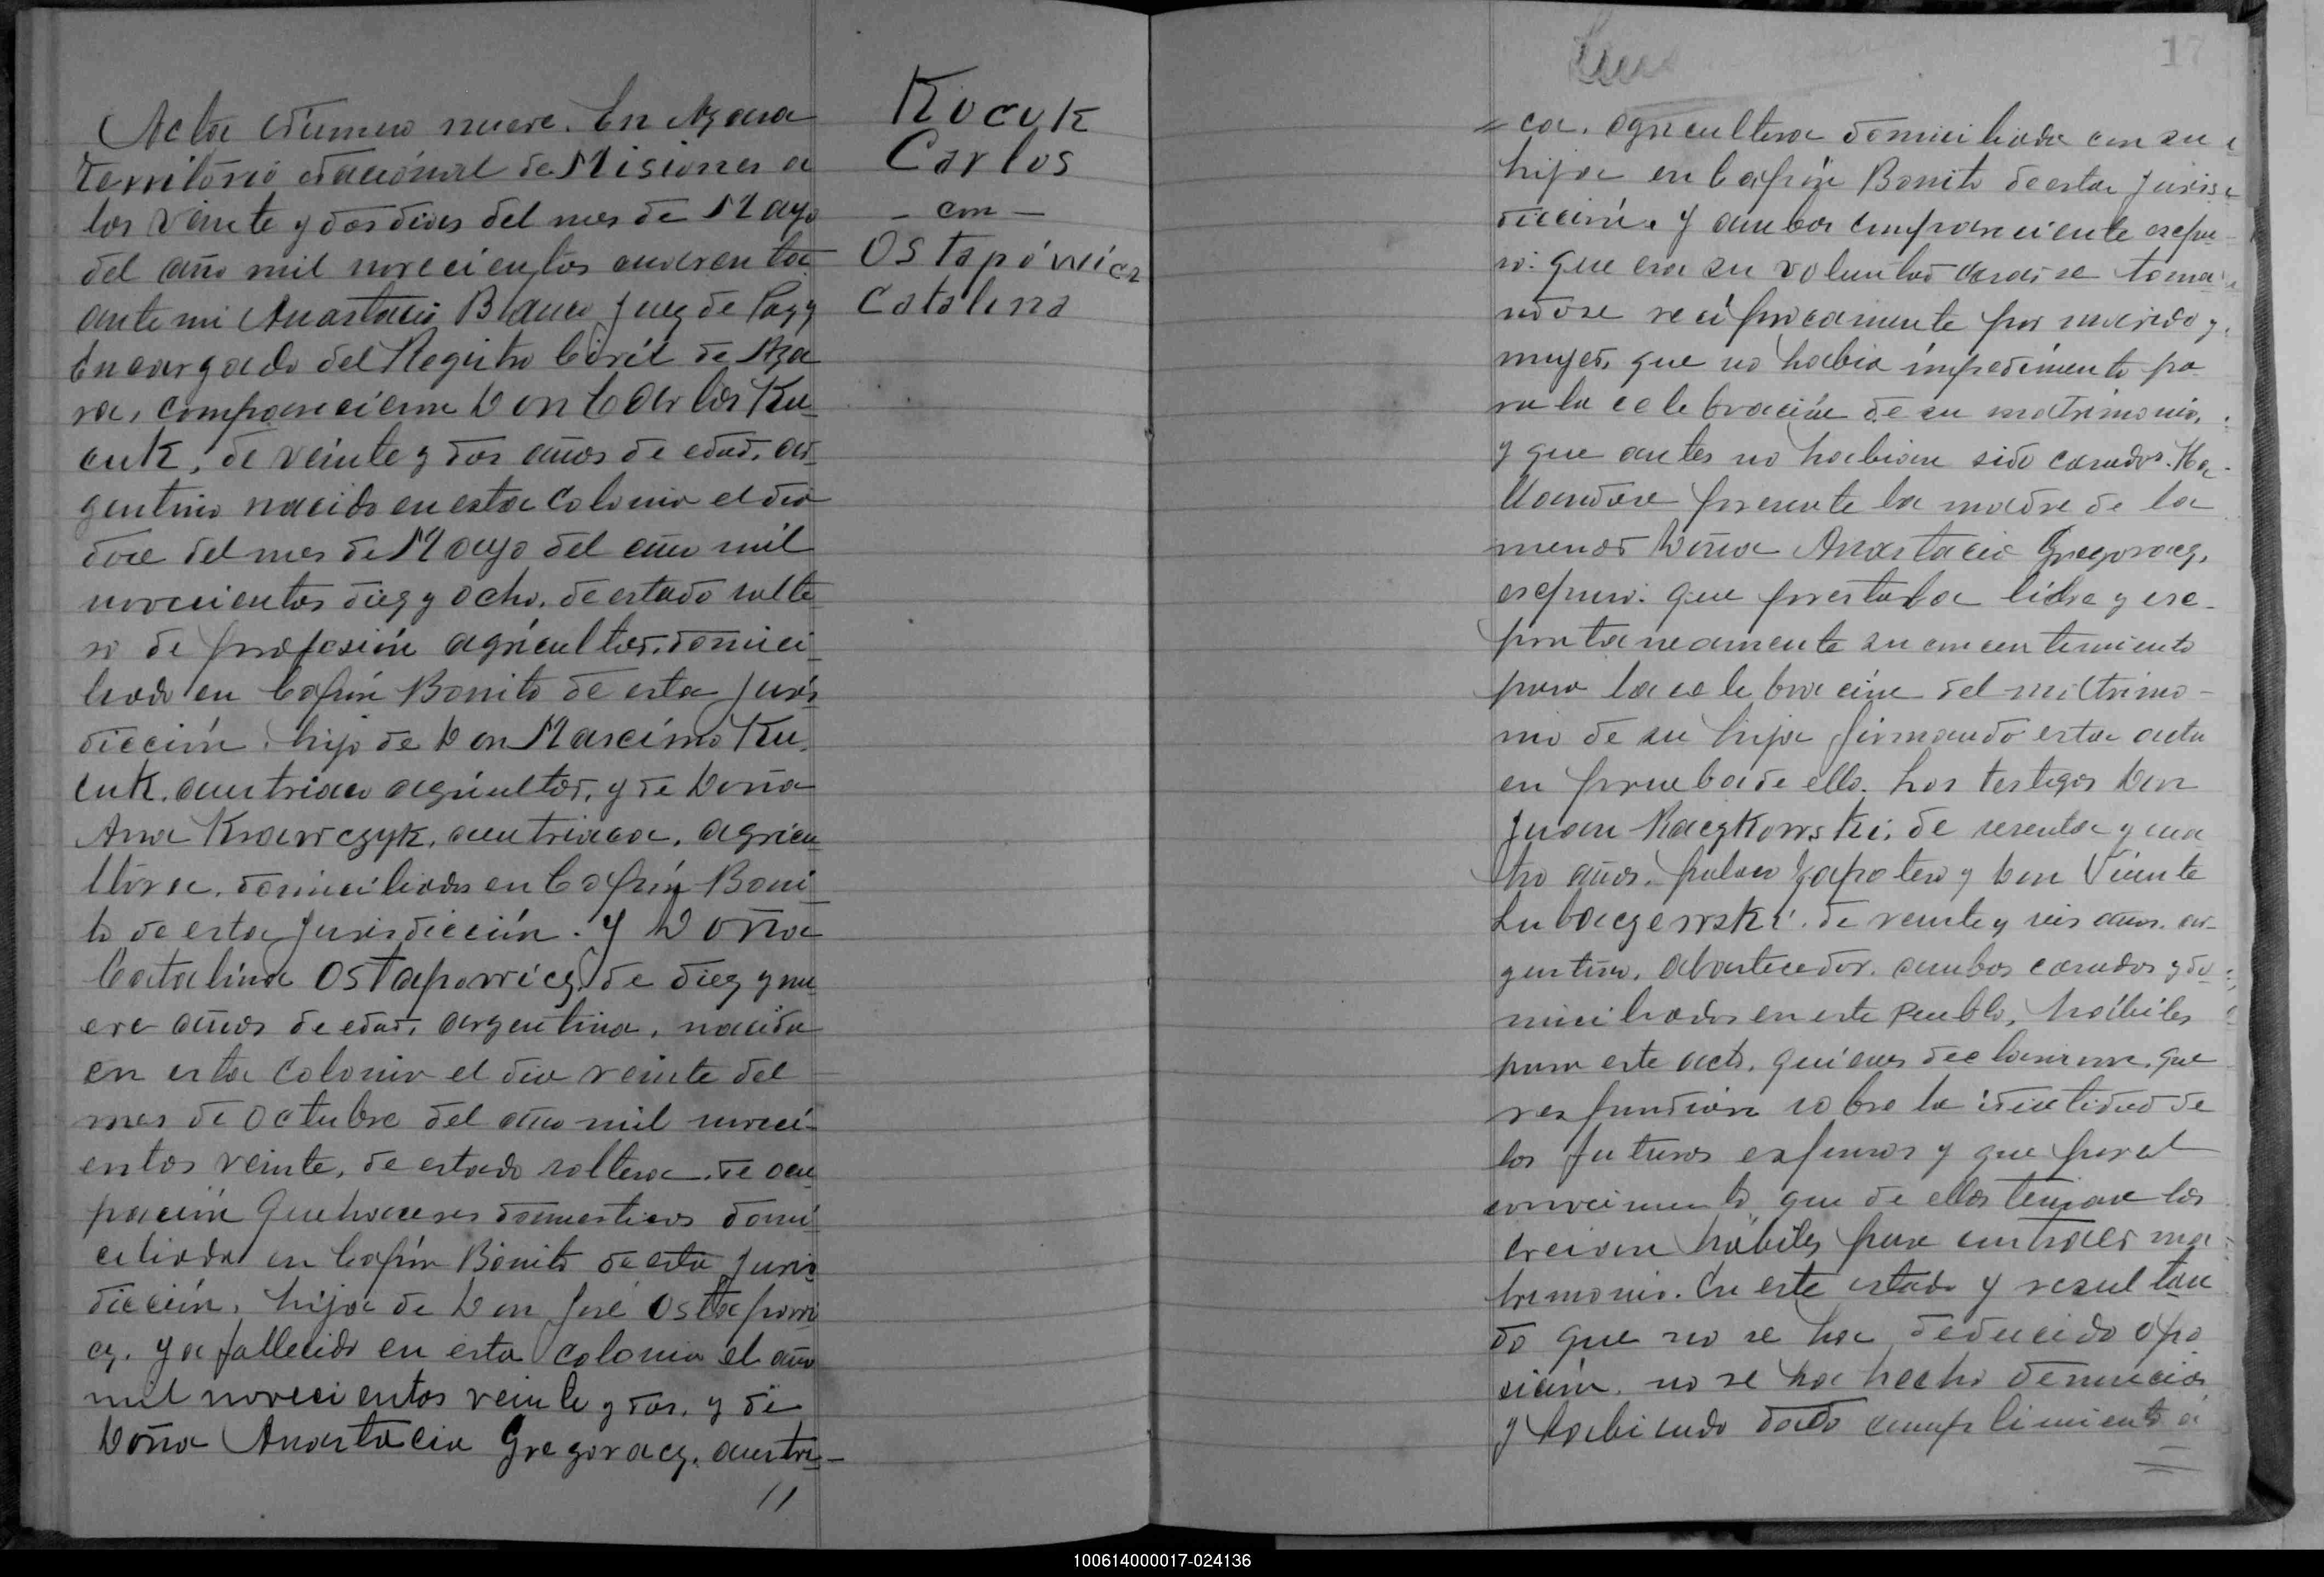 Acta Número nueve. En Azara
Territorio Nacional de Misiones a
los veinte y dos dias del mes de Mayo
del año mil novecientos cuarenta
ante mi Anastacio Blanco Juez de Paz y
Encargado del Registro Civil de Aza
ra, comparecieron Don Carlos Ku
cuk, de veinte y dos años de edad, ar
gentino nacido en esta Colonia el dia
doce del mes de Mayo del año mil
novecientos diez y ocho, de estado solte
ro de profesión agricultor, domici
liado en Capón Bonito de esta Juris
dicción, hijo de Don Marcimo Ku
cuk, austriaco agricultor, y de Doña
Ana Krawczyk, austriaca, agricu
ltora, domiciliados en Capón Boni
to de esta Jurisdicción. Y Doña
Catalina Ostapowicz, de diez y nu
eve años de edad, argentina, nacida
en esta Colonia el dia veinte del
mes de Octubre del año mil noveci
entos veinte, de estado soltera, de ocu
pación Quehaceres domesticos domi
ciliada en Capón Bonito de esta Juris
dicción, hija de Don José Ostapowi
cz. ya fallecido en esta colonia el año
mil novecientos veinte y dos. y de
Doña Anastacia Gregoracz, austri-
//
Kocuk
Carlos
- con -
Ostapówicz
Catalina
17
= ca, agricultora domiciliada con su
hija en Capón Bonito de esta Juris
dicción. Y ambos compareciente espu
so: que era su voluntad casarse toma
ndose reciprocamente por marido y
mujer, que no habia impedimento pa
ra la celebración de su matrimonio,
y que antes no habian sido casados. Ha
llandose presente la madre de la
menor Doña Anastacia Gregoracz,
espuso: que prestaba libre y es
pontaneamente su concentimiento
para la celebración del matrimo-
nio de su hija firmando esta acta
en prueba de ello. Los testigos Don
Juan Raczkowski, de sesenta y cua
tro años, polaco Zapatero y Don Vicente
Lubaczewski, de veinte y seis años, ar-
gentino, abastecedor, ambos casados y do
miciliados en este Pueblo, hábiles
para este acto, quienes declararon que
respondian sobre la identidad de
los futuros esposos y que por el
conocimiento que de ellos tenian los
creian hábiles para contraer ma
trimonio. En este estado y resultan
do que no se ha deducido opo
sición, no se ha hecho denuncia
y habiendo dado cumplimiento a
100614000017-024136